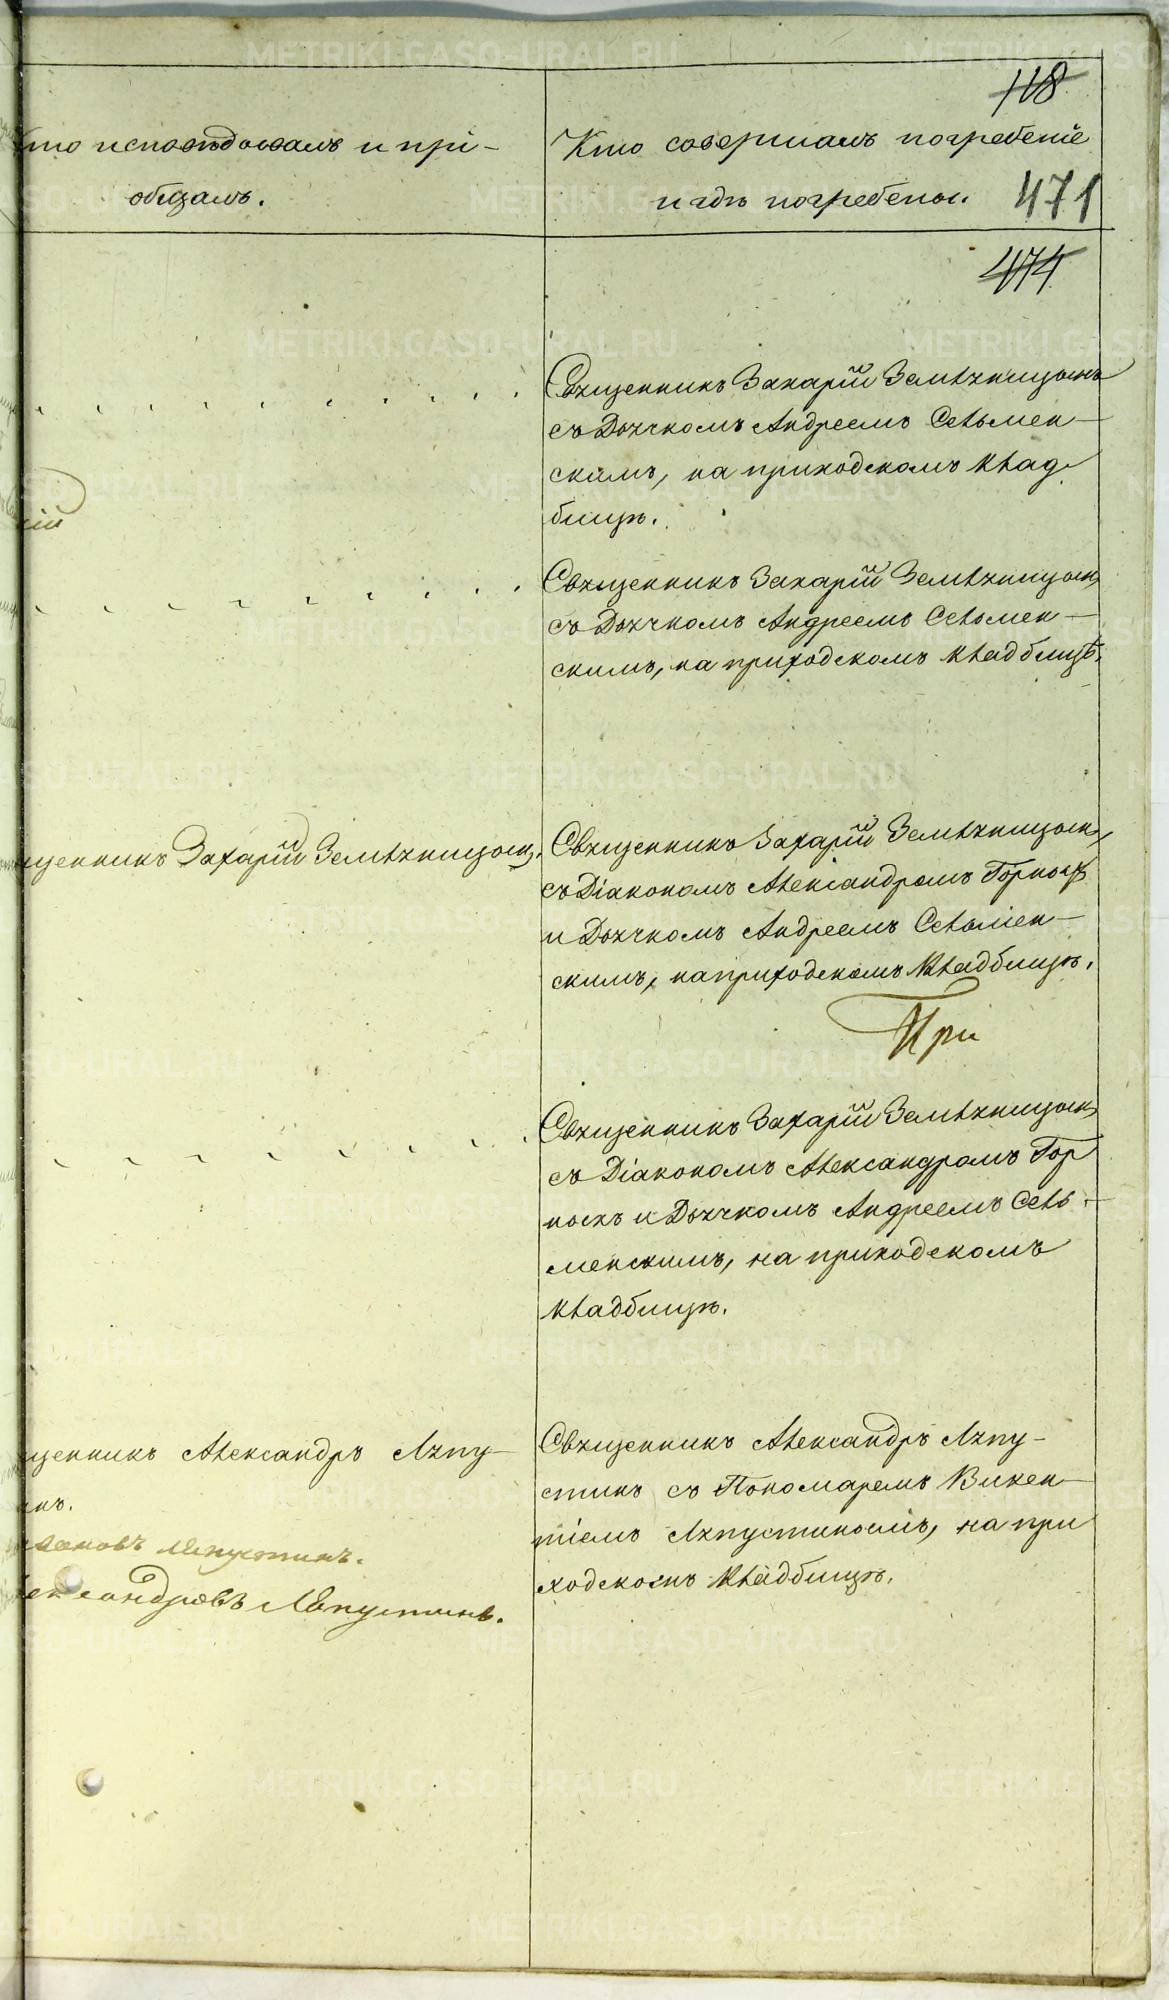 118
Кто исповѣдовалъ и прі-
общалъ.
Кто совершалъ погребеніе
и гдѣ погребены.
471
474
Священникъ Захарій Земляницынъ
съ Дьячкомъ Андреемъ Сельмен-
скимъ, на приходскомъ клад
бищѣ.
Священникъ Захарій Земляницын
съ Дьячкомъ Андреемъ Сельмен-
скимъ, на приходскомъ кладбищѣ.
щенникъ Захарій Земляницын.
Священникъ Захарій Земляницын,
съ Діакономъ Александромъ
и Дьячкомъ Андреемъ Сельмен-
скимъ, на приходскомъ кладбищѣ.
При
Священникъ Захарій Земляницын
съ Діакономъ Александромъ Гор
и Дьячкомъ Андреемъ Сель-
менскимъ, на приходскомъ
кладбищѣ.
щенникъ Александръ Ляпу-
инъ.
Ляпустинъ.
ександровъ Ляпустинъ.
Священникъ Александръ Ляпу-
стинъ съ Пономаремъ Викен-
тіемъ Ляпустинымъ, на при
ходскомъ кладбищѣ.
METRIKI.GASO-URAL.RU